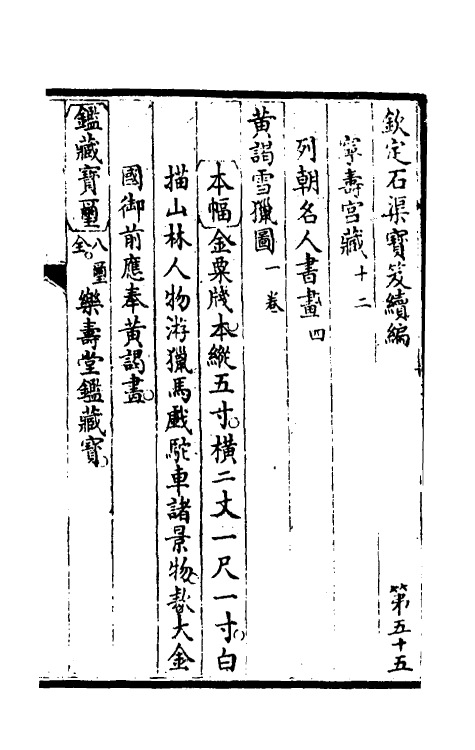 欽定石渠寶笈續編　第五十五
寧壽宮藏十二
列朝名人書畫四
黃謁雪獵圖一卷
本幅金粟牋本縱五寸橫二丈一尺一寸白
描山林人物游獵馬戲駝車諸景物款大金
國御前應奉黃謁畫
鑑藏寶璽八璽全樂壽堂鑑藏寶